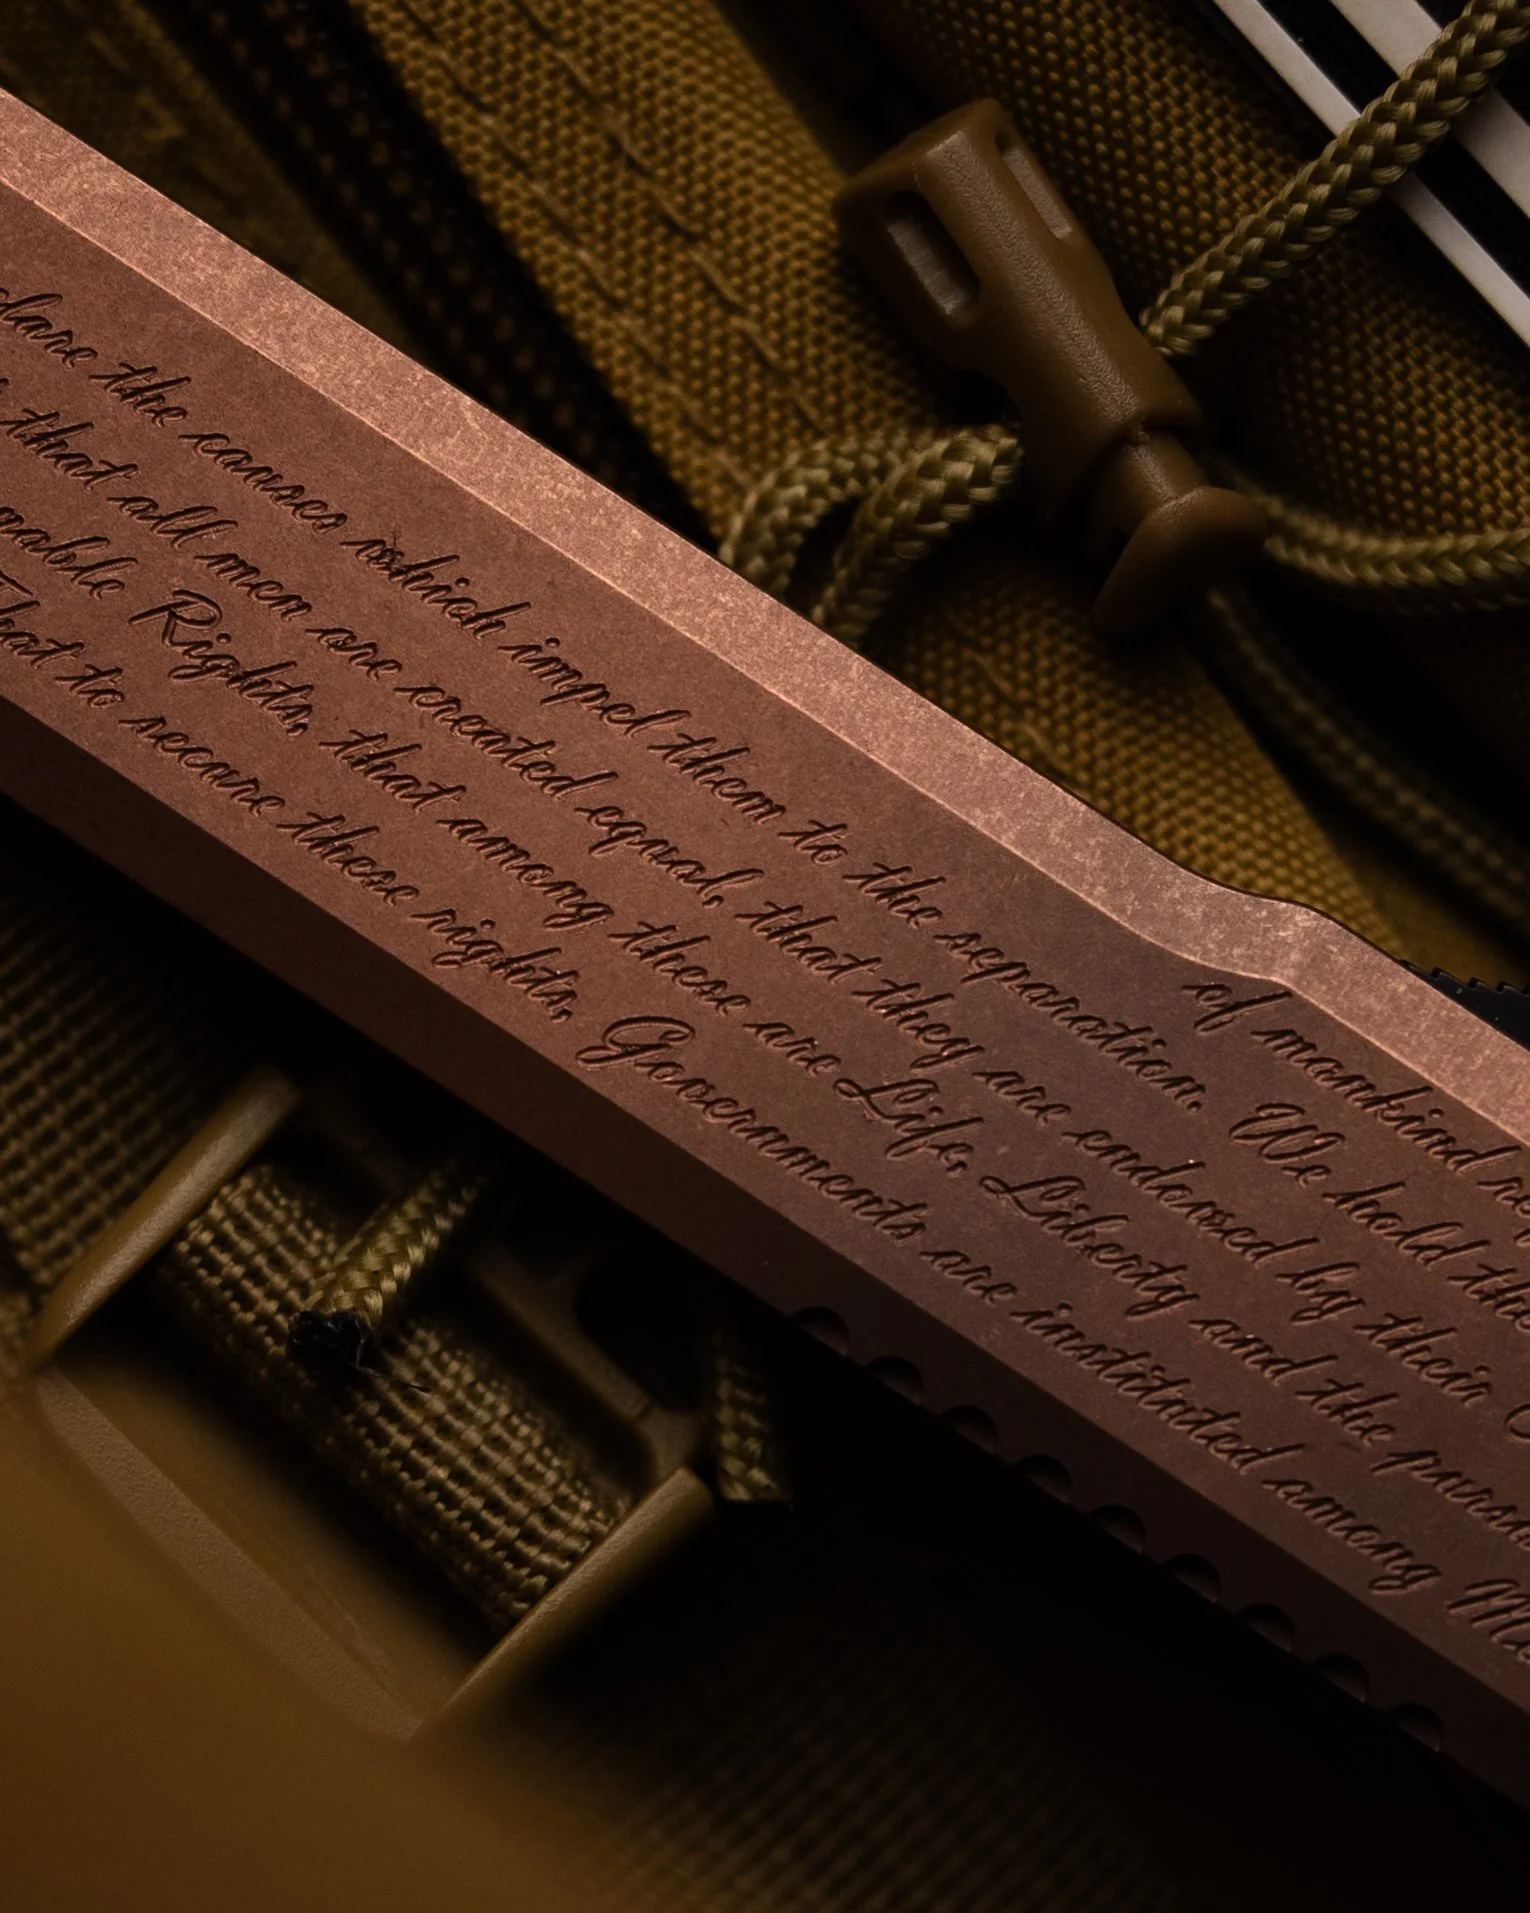 of mankind re
clare the causes which impel them to the separation. We hold the
that all men are created equal, that they are endowed by their C
nable Rights, that among these are Life, Liberty and the pursu
That to secure these rights, Governments are instituted among Me